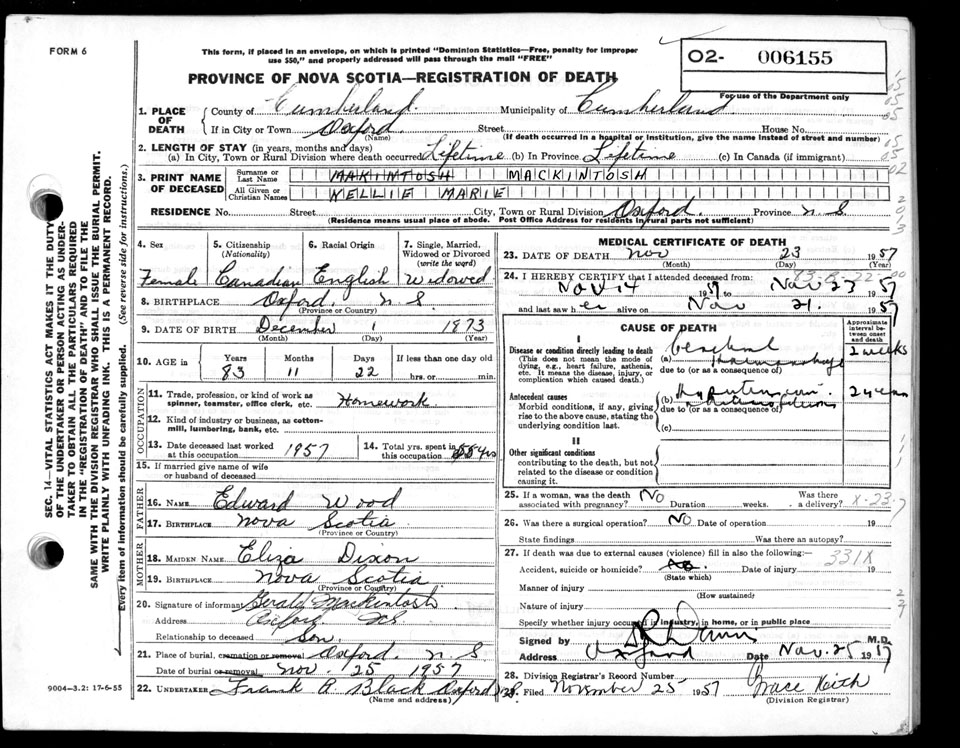 FORM 6
This form, if placed in an envelope, on which is printed "Dominion Statistics—Free, penalty for improper
use $50," and properly addressed will pass through the mail "FREE"
O2- 006155
PROVINCE OF NOVA SCOTIA—REGISTRATION OF DEATH
For use of the Department only
1. PLACE OF DEATH County of Cumberland. Municipality of Cumberland
If in City or Town Oxford. Street House No.
(Name) (If death occurred in a hospital or institution, give the name instead of street and number)
2. LENGTH OF STAY (in years, months and days)
(a) In City, Town or Rural Division where death occurred Lifetime (b) In Province Lifetime (c) In Canada (if immigrant)
3. PRINT NAME OF DECEASED Surname or Last Name MAKINTOSH MACKINTOSH
All Given or Christian Names KELLIE MARIE
RESIDENCE No. Street City, Town or Rural Division Oxford. Province N.S.
(Residence means usual place of abode. Post Office Address for residents in rural parts not sufficient)
4. Sex 5. Citizenship (Nationality) 6. Racial Origin 7. Single, Married, Widowed or Divorced (write the word)
Female Canadian English Widowed
8. BIRTHPLACE Oxford, N.S.
(Province or Country)
9. DATE OF BIRTH December 1 1873
(Month) (Day) (Year)
10. AGE in Years Months Days If less than one day old
83 11 22 hrs. or min.
OCCUPATION
11. Trade, profession, or kind of work as spinner, teamster, office clerk, etc. Homework.
12. Kind of industry or business, as cotton-mill, lumbering, bank, etc.
13. Date deceased last worked at this occupation 1957 14. Total yrs. spent in this occupation yrs
15. If married give name of wife or husband of deceased
FATHER
16. NAME Edward Wood
17. BIRTHPLACE Nova Scotia
(Province or Country)
MOTHER
18. MAIDEN NAME Eliza Dixon
19. BIRTHPLACE Nova Scotia
(Province or Country)
20. Signature of informant Gerald Mackintosh
Address Oxford NS
Relationship to deceased Son.
21. Place of burial, cremation or removal Oxford, N.S.
Date of burial or removal Nov 25 1957
22. UNDERTAKER Frank A. Black Oxford N.S.
(Name and address)
MEDICAL CERTIFICATE OF DEATH
23. DATE OF DEATH Nov 23 1957
(Month) (Day) (Year)
24. I HEREBY CERTIFY that I attended deceased from:
Nov 14 1957 to Nov 23 1957
and last saw h er alive on Nov 21. 1957
CAUSE OF DEATH
Approximate interval between onset and death
I
Disease or condition directly leading to death
(This does not mean the mode of dying, e.g., heart failure, asthenia, etc. It means the disease, injury, or complication which caused death.)
(a) Cerebral haemorrhage 2 weeks
due to (or as a consequence of)
Antecedent causes
Morbid conditions, if any, giving rise to the above cause, stating the underlying condition last.
(b) Hypertension 2 years
due to (or as a consequence of)
(c)
II
Other significant conditions
contributing to the death, but not related to the disease or condition causing it.
25. If a woman, was the death associated with pregnancy? No Duration weeks. Was there a delivery? X-23-7
26. Was there a surgical operation? No Date of operation 19
State findings Was there an autopsy?
27. If death was due to external causes (violence) fill in also the following:— 331X
Accident, suicide or homicide? No. Date of injury 19
(State which)
Manner of injury
(How sustained)
Nature of injury
Specify whether injury occurred in industry, in home, or in public place
Signed by M.D.
Address Oxford Date Nov. 25 1957
28. Division Registrar's Record Number 28.
Filed November 25 1957 Grace Keith
(Division Registrar)
SEC. 14—VITAL STATISTICS ACT MAKES IT THE DUTY
OF THE UNDERTAKER OR PERSON ACTING AS UNDER-
TAKER TO OBTAIN ALL THE PARTICULARS REQUIRED
IN THE "REGISTRATION OF DEATH" AND TO FILE THE
SAME WITH THE DIVISION REGISTRAR WHO SHALL ISSUE THE BURIAL PERMIT.
WRITE PLAINLY WITH UNFADING INK. THIS IS A PERMANENT RECORD.
Every item of information should be carefully supplied. (See reverse side for instructions.)
9004—3.2: 17-6-55